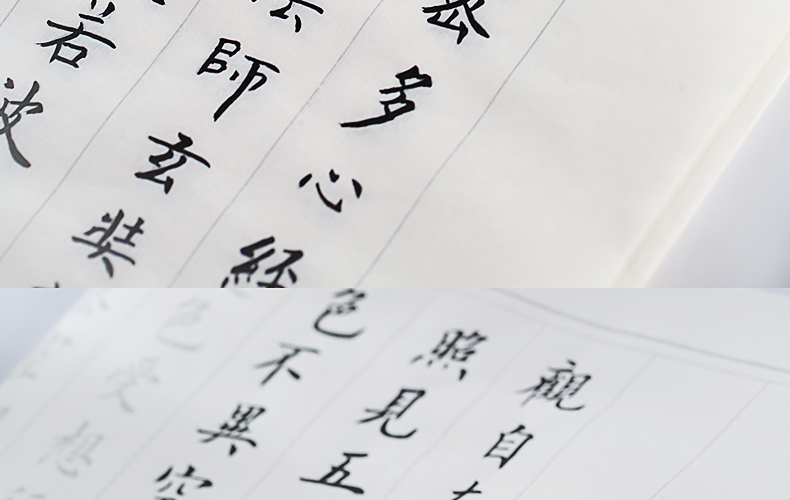 多心經
法師玄奘
若波
觀自
照見五
色不異空
色受想